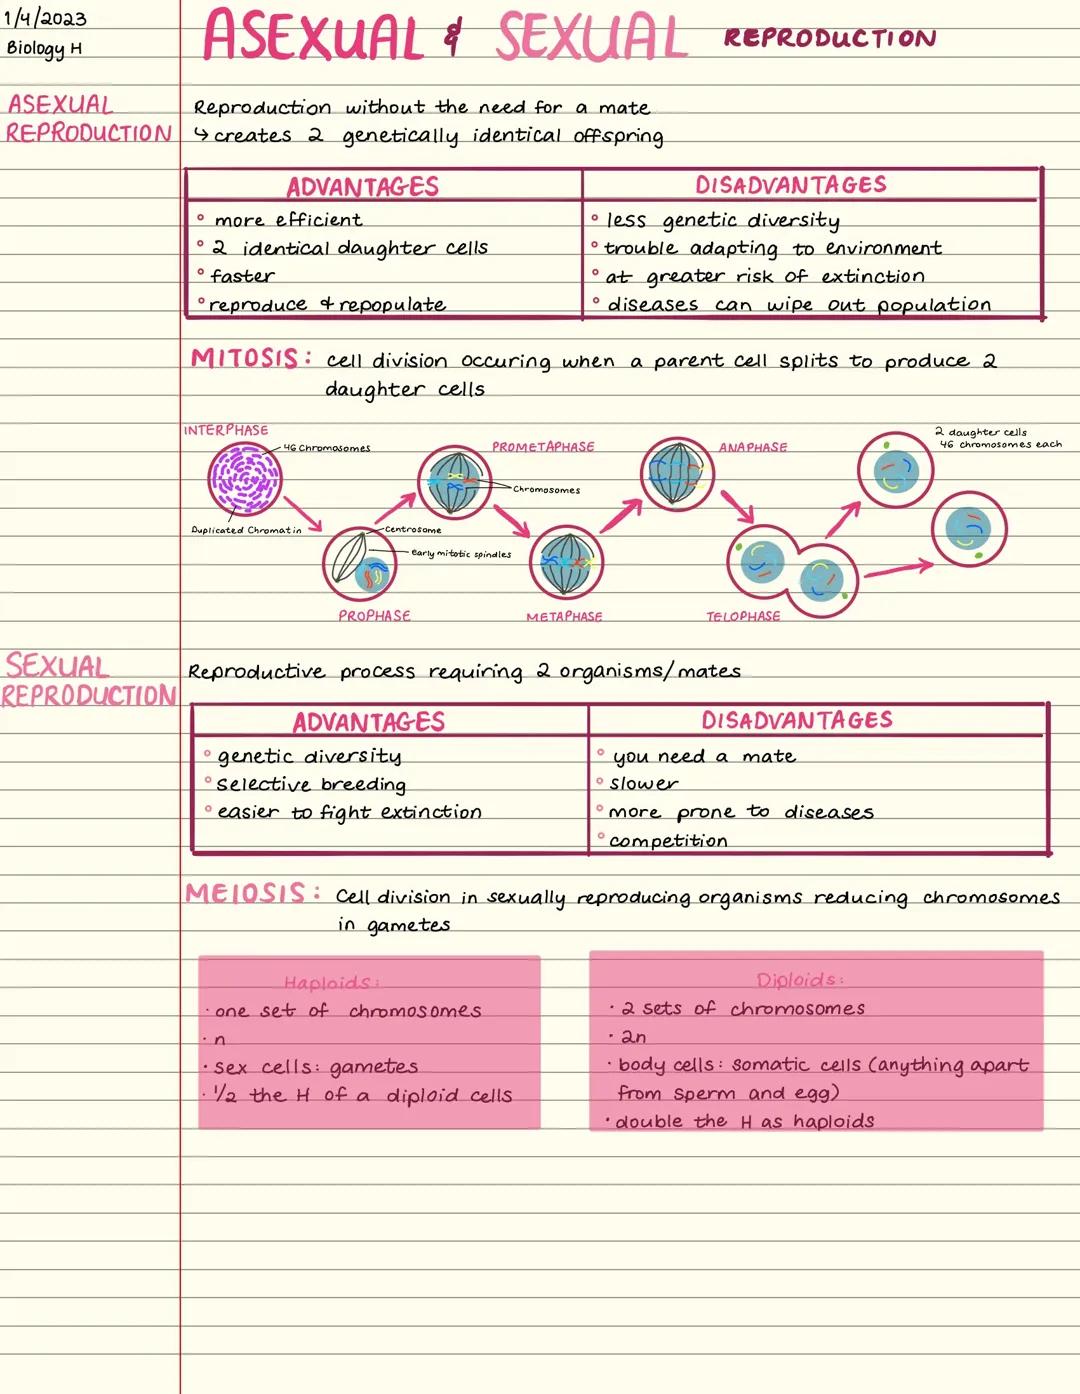 1/4/2023
Biology H
ASEXUAL & SEXUAL REPRODUCTION
ASEXUAL
REPRODUCTION
Reproduction without the need for a mate
↳ creates 2 genetically identical offspring
ADVANTAGES
° more efficient
° 2 identical daughter cells
° faster
° reproduce & repopulate
DISADVANTAGES
° less genetic diversity
° trouble adapting to environment
° at greater risk of extinction
° diseases can wipe out population
MITOSIS: cell division occuring when a parent cell splits to produce 2
daughter cells
INTERPHASE
46 Chromosomes
Duplicated Chromatin
Centrosome
early mitotic spindles
PROPHASE
PROMETAPHASE
Chromosomes
METAPHASE
ANAPHASE
TELOPHASE
2 daughter cells
46 chromosomes each
SEXUAL
REPRODUCTION
Reproductive process requiring 2 organisms/mates
ADVANTAGES
° genetic diversity
° selective breeding
° easier to fight extinction
DISADVANTAGES
° you need a mate
° slower
° more prone to diseases
° competition
MEIOSIS: Cell division in sexually reproducing organisms reducing chromosomes
in gametes
Haploids:
· one set of chromosomes
· n
· sex cells: gametes
· 1/2 the H of a diploid cells
Diploids:
· 2 sets of chromosomes
· 2n
· body cells: somatic cells (anything apart
from sperm and egg)
· double the H as haploids